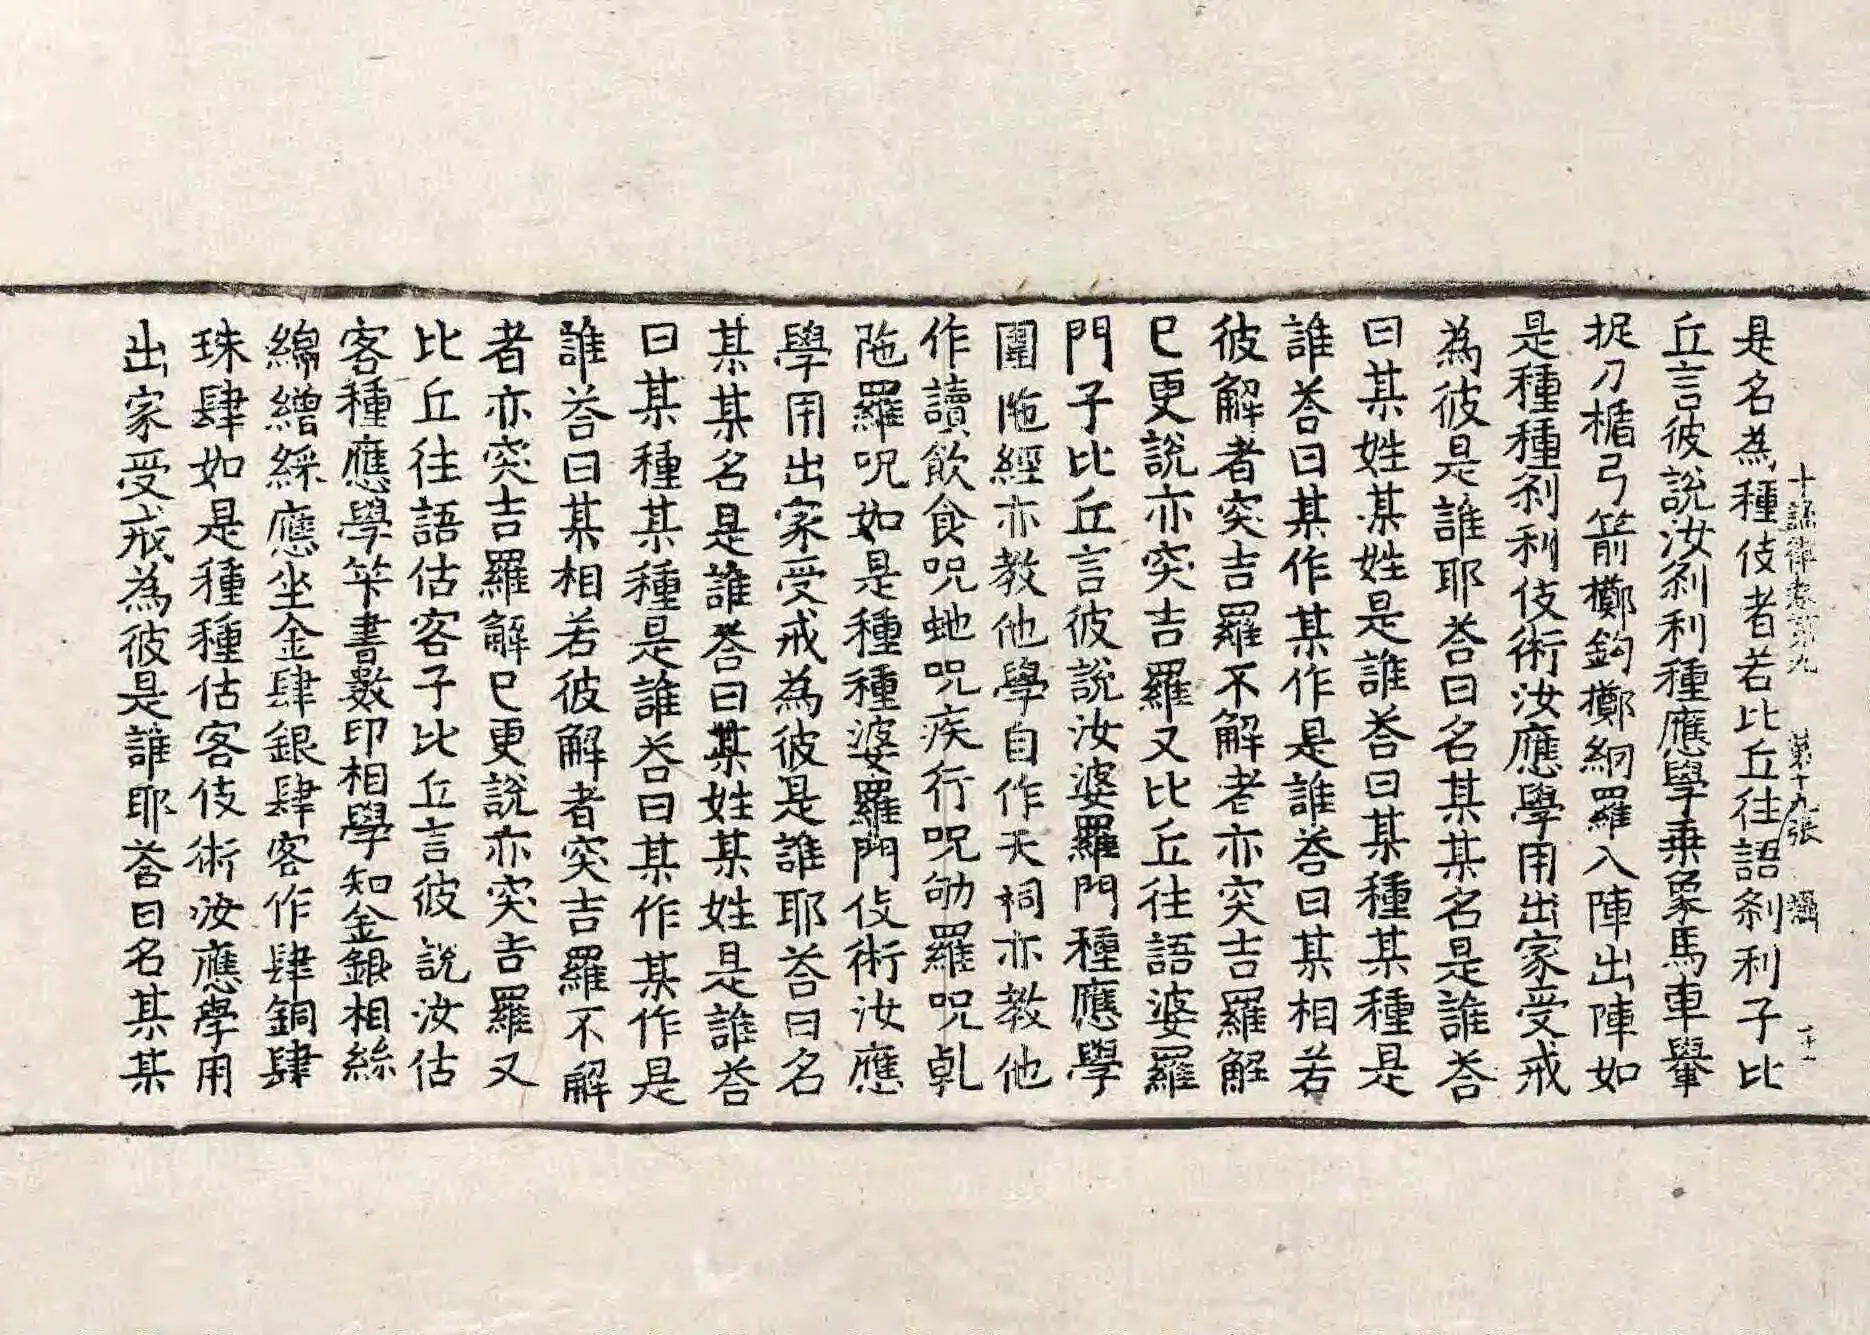 十誦律卷第九　第十九張　攝
是名為種伎者若比丘往語刹利子比
丘言彼說汝刹利種應學乗象馬車轝
捉刀楯弓箭擲鈎擲網羅入陣出陣如
是種種刹利伎術汝應學用出家受戒
為彼是誰耶荅曰名某某名是誰荅
曰某姓某姓是誰荅曰某種某種是
誰荅曰某作某作是誰荅曰某相若
彼解者突吉羅不解者亦突吉羅解
已更說亦突吉羅又比丘往語婆羅
門子比丘言彼說汝婆羅門種應學
圍陁經亦教他學自作天祠亦教他
作讀飲食呪虵呪疾行呪劬羅呪乹
陁羅呪如是種種婆羅門伎術汝應
學用出家受戒為彼是誰耶荅曰名
某某名是誰荅曰某姓某姓是誰荅
曰某種某種是誰荅曰某作某作是
誰荅曰某相若彼解者突吉羅不解
者亦突吉羅解已更說亦突吉羅又
比丘往語估客子比丘言彼說汝估
客種應學笇書數印相學知金銀相絲
綿繒綵應坐金肆銀肆客作肆銅肆
珠肆如是種種估客伎術汝應學用
出家受戒為彼是誰耶荅曰名某某